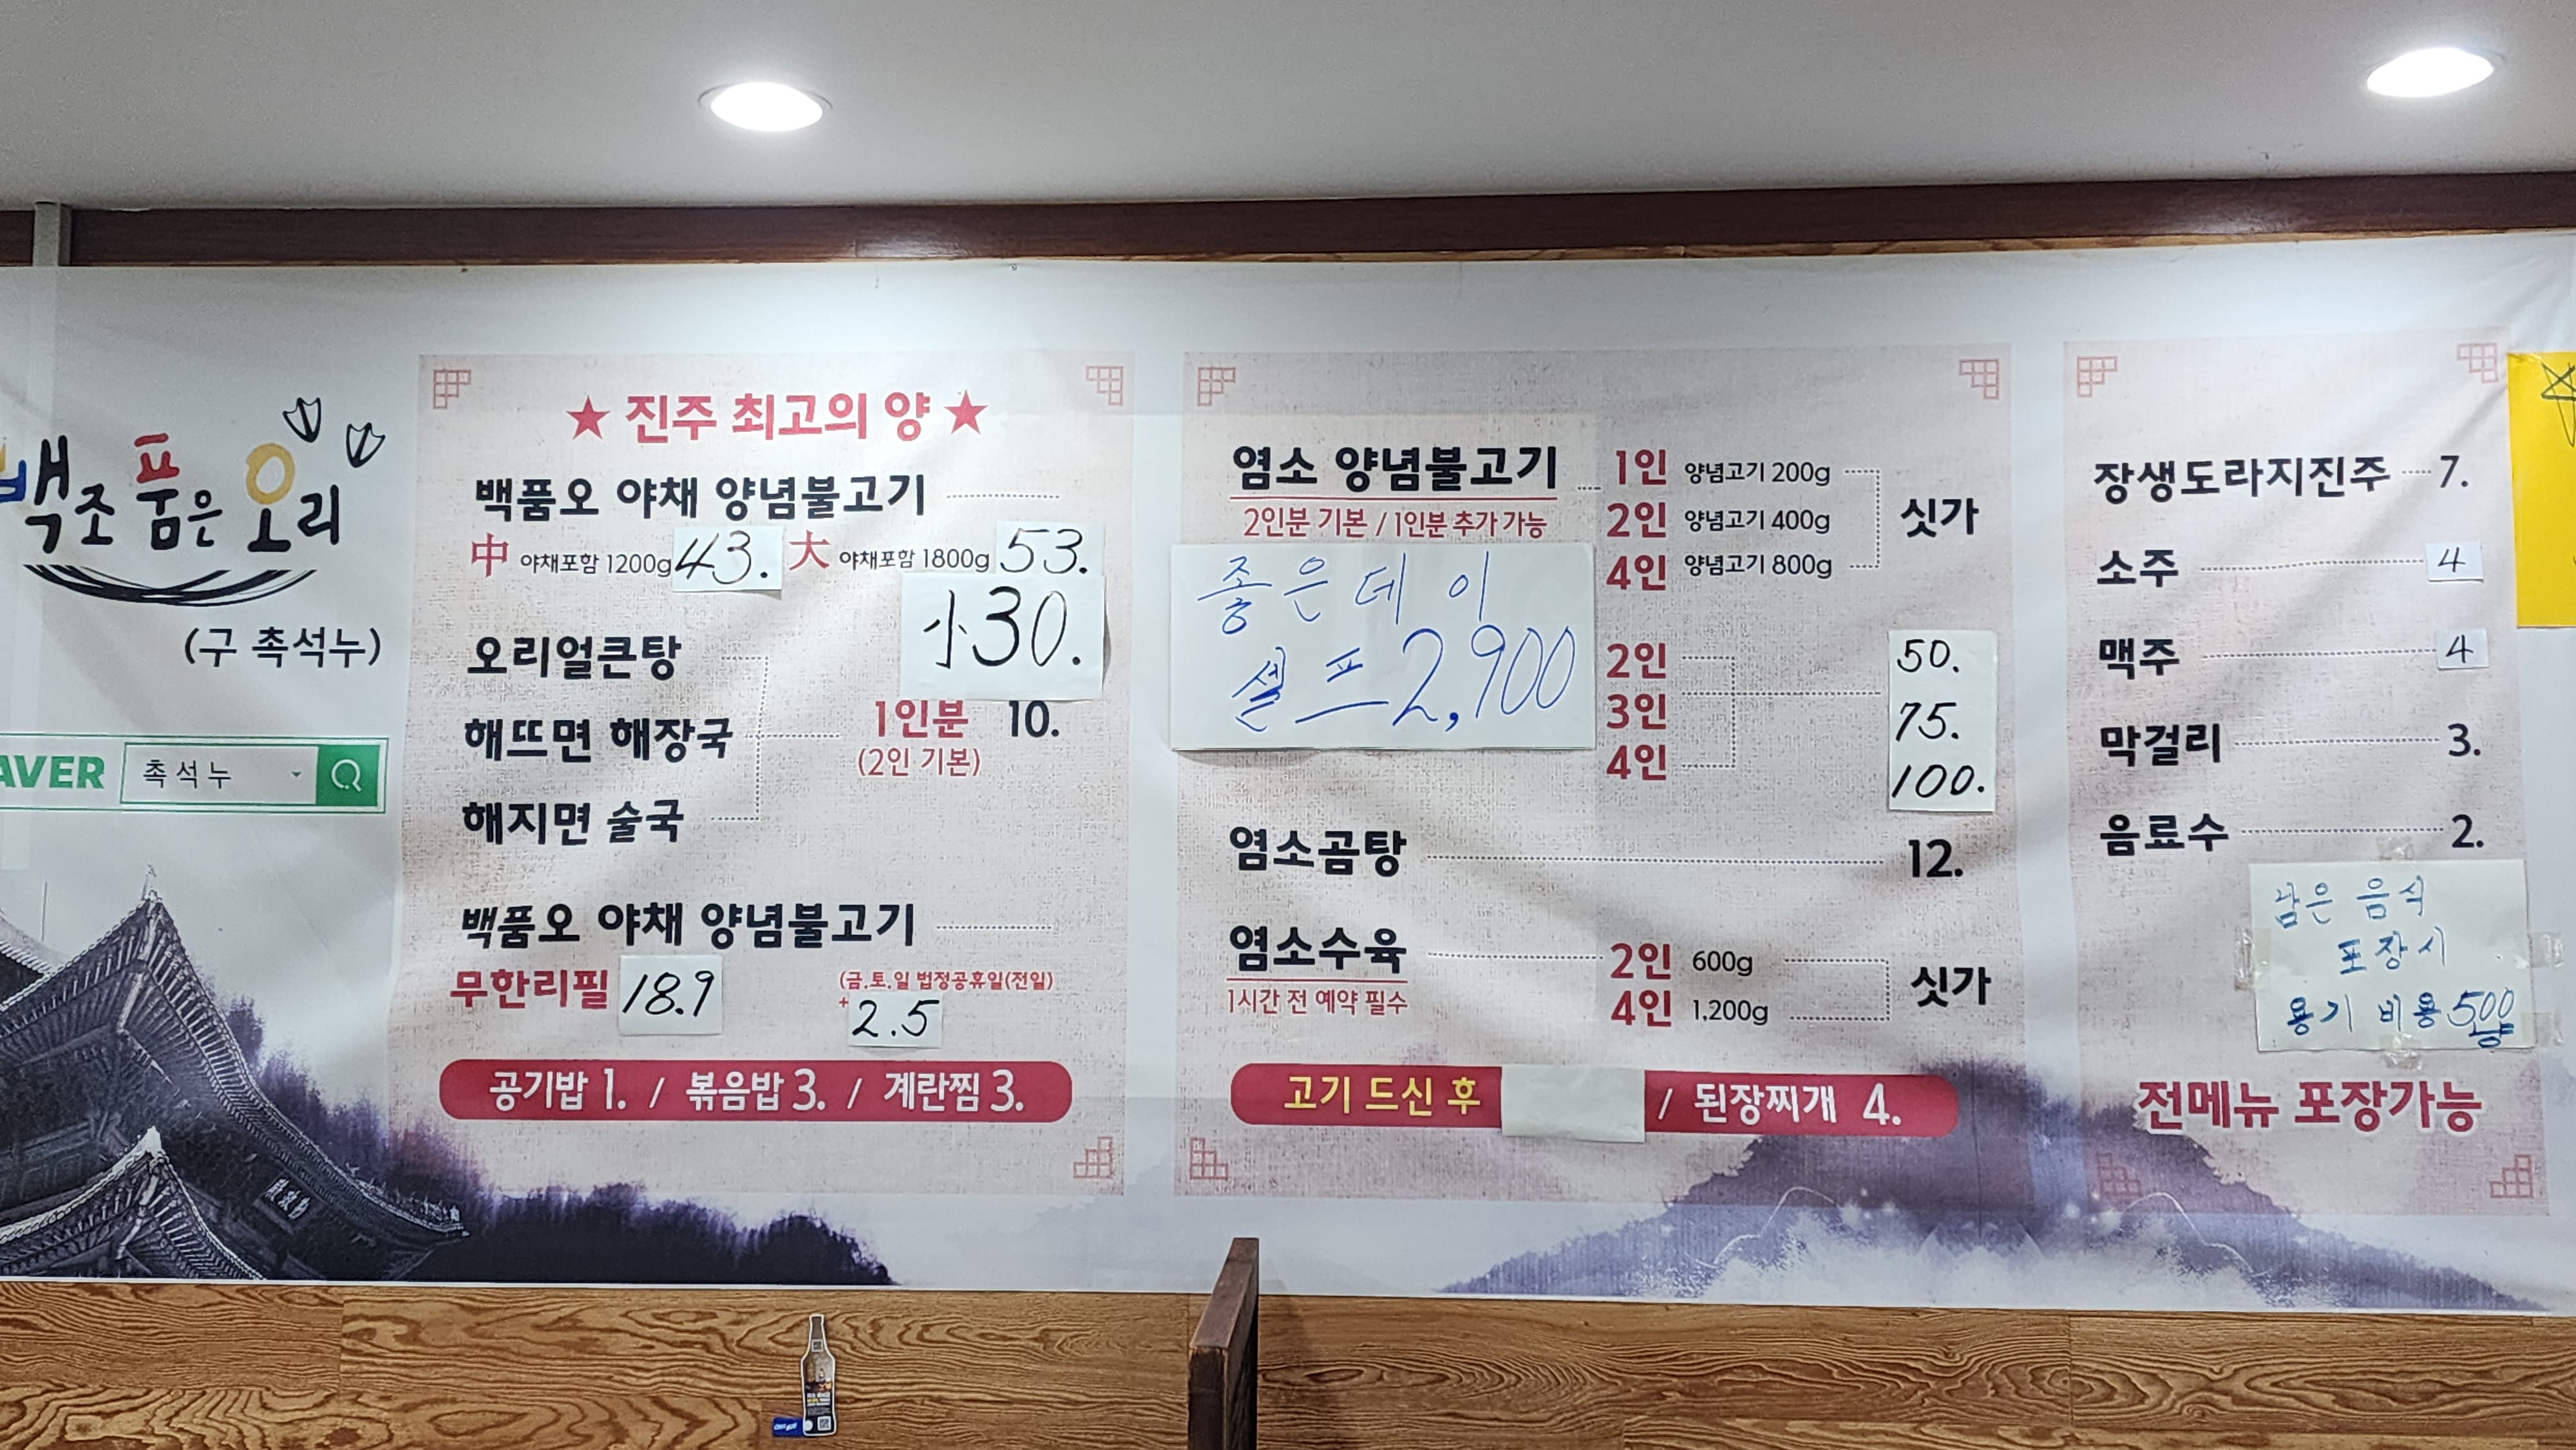 백조 품은 오리
(구 촉석누)
AVER 촉석누
★ 진주 최고의 양 ★
백품오 야채 양념불고기
中 야채포함 1200g 43. 大 야채포함 1800g 53.
小30.
오리얼큰탕
해뜨면 해장국 1인분 10.
(2인 기본)
해지면 술국
백품오 야채 양념불고기
무한리필 18.9 (금.토.일 법정공휴일(전일)
+ 2.5
공기밥 1. / 볶음밥 3. / 계란찜 3.
염소 양념불고기
2인분 기본 / 1인분 추가 가능
1인 양념고기 200g
2인 양념고기 400g
4인 양념고기 800g
싯가
좋은데이
셀프 2,900
2인 50.
3인 75.
4인 100.
염소곰탕 12.
염소수육
1시간 전 예약 필수
2인 600g
4인 1,200g
싯가
고기 드신 후 / 된장찌개 4.
장생도라지진주 7.
소주 4
맥주 4
막걸리 3.
음료수 2.
남은 음식
포장시
용기 비용 500냥
전메뉴 포장가능